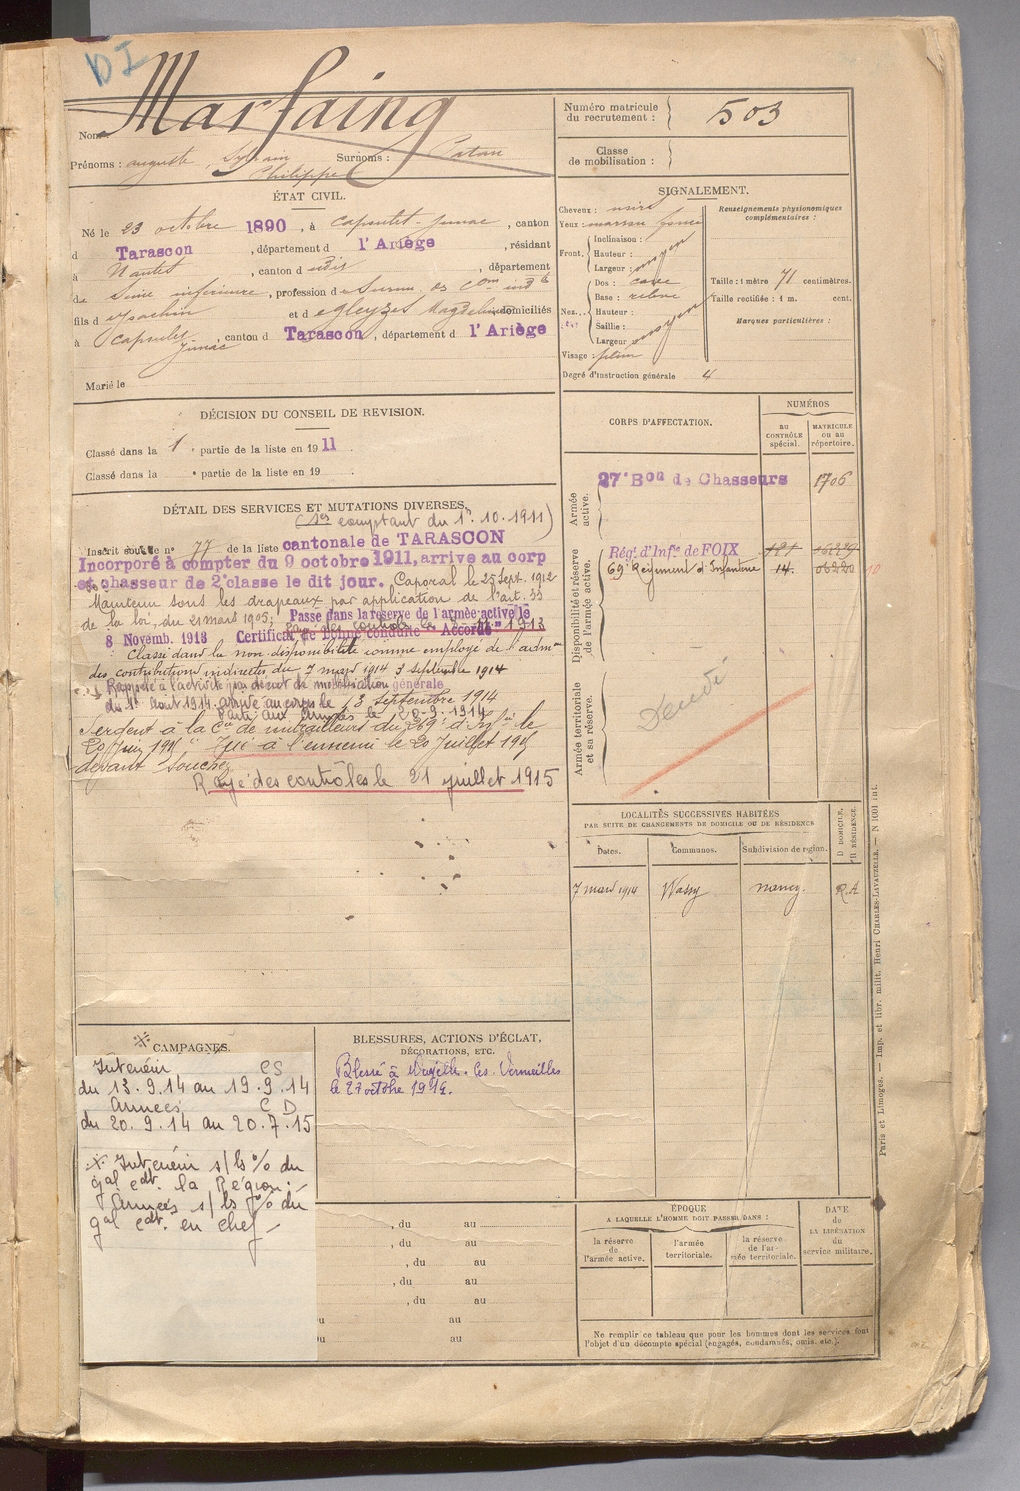 DI
Marfaing
Nom :
Prénoms : auguste, Sylvain Philippe Surnoms : Patau
Numéro matricule du recrutement : 503
Classe de mobilisation :
ÉTAT CIVIL.
Né le 23 octobre 1890, à Capoulet-Junac, canton
d Tarascon, département d l'Ariège, résidant
à Nantes, canton d udit, département
de Loire inférieure, profession de
fils d Joachin et d Gleyzes Magdeleine domiciliés
à Capoulet Junac, canton d Tarascon, département d l'Ariège
Marié le
SIGNALEMENT.
Cheveux : noirs
Yeux : marron foncé
Front. Inclinaison :
Hauteur : moyen
Largeur :
Nez. Dos : cave
Base : relevé
Hauteur :
Saillie : moyen
Largeur
Visage : plein
Degré d'instruction générale 4
Renseignements physionomiques complémentaires :
Taille : 1 mètre 71 centimètres.
Taille rectifiée : 1 m. cent.
Marques particulières :
DÉCISION DU CONSEIL DE REVISION.
Classé dans la 1 e partie de la liste en 1911
Classé dans la e partie de la liste en 19 .
DÉTAIL DES SERVICES ET MUTATIONS DIVERSES.
(Les comptant du 1er 10.1911)
Inscrit sous le n° 77 de la liste cantonale de TARASCON
Incorporé à compter du 9 octobre 1911, arrive au corp
et chasseur de 2e classe le dit jour. Caporal le 25 Sept. 1912
Maintenu sous les drapeaux par application de l'art. 33
de la loi du 21 mars 1905; Passe dans la réserve de l'armée active le
8 Novemb. 1913 Certificat de bonne conduite "Accordé"
Rayé des contrôles le 8 1913
Classé dans la non-disponibilité comme employé de l'admon
des contributions indirectes du 7 mars 1914 3 septembre 1914
Rappelé à l'activité par décret de mobilisation générale
du 1er Août 1914. arrivé au corps le 13 septembre 1914
Parti aux armées le 20.9.1914
Sergent à la Cie de mitrailleurs du 269e d'Infie le
20 Juin 1915 Tué à l'ennemi le 20 Juillet 1915
devant Souchez
Rayé des contrôles le 21 juillet 1915
CORPS D'AFFECTATION.
NUMÉROS
au contrôle spécial.
matricule ou au répertoire.
Armée active.
27e Bon de Chasseurs 1706
Disponibilité et réserve de l'armée active.
Régt d'Infie de FOIX
69e Régiment d'Infanterie 14.
Armée territoriale et sa réserve.
Décédé
LOCALITÉS SUCCESSIVES HABITÉES
PAR SUITE DE CHANGEMENTS DE DOMICILE OU DE RÉSIDENCE
Dates. Communes. Subdivision de région. D DOMICILE, R RÉSIDENCE.
7 mars 1914 Wassy nancy. R.A
CAMPAGNES.
Intérieur CS
du 13.9.14 au 19.9.14
Armées CD
du 20.9.14 au 20.7.15
Intérieur s/ls % du
gal cdt. la Région.
Armées s/ls % du
gal cdt. en chef
BLESSURES, ACTIONS D'ÉCLAT,
DÉCORATIONS, ETC.
Blessé à les Vermeilles
le 27 octobre 1914.
, du au
, du au
, du au
, du au
, du au
du au
du au
ÉPOQUE
A LAQUELLE L'HOMME DOIT PASSER DANS :
la réserve de l'armée active.
l'armée territoriale.
la réserve de l'armée territoriale.
DATE de LA LIBÉRATION du service militaire.
Ne remplir ce tableau que pour les hommes dont les services font
l'objet d'un décompte spécial (engagés, condamnés, omis, etc.).
Paris et Limoges. — Imp. et libr. milit. Henri CHARLES-LAVAUZELLE. — N 1601 int.